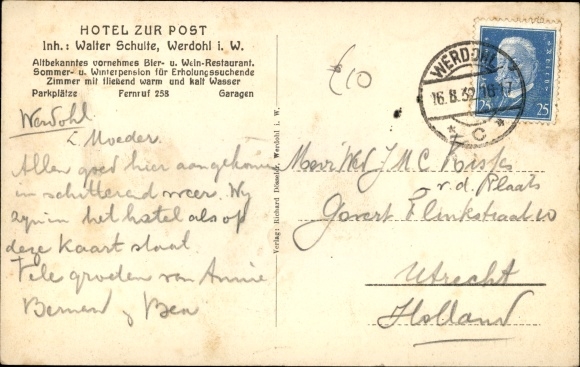 HOTEL ZUR POST
Inh.: Walter Schulte, Werdohl i. W.
Altbekanntes vornehmes Bier- u. Wein-Restaurant.
Sommer- u. Winterpension für Erholungssuchende
Zimmer mit fließend warm und kalt Wasser
Parkplätze Fernruf 258 Garagen
€10
WERDOHL
16.8.32.16-17
* C *
25 25
Werdohl
L. Moeder.
Allen goed hier aangekomen
in schitterend weer. Wij
zijn in het hotel als op
deze kaart staat
Vele groeten van Annie
Bernard Bea
Verlag: Richard Dösseler, Werdohl i. W.
Mevr Wed J M C
v. d. Plaats
Govert Flinkstraat 10
Utrecht
Holland